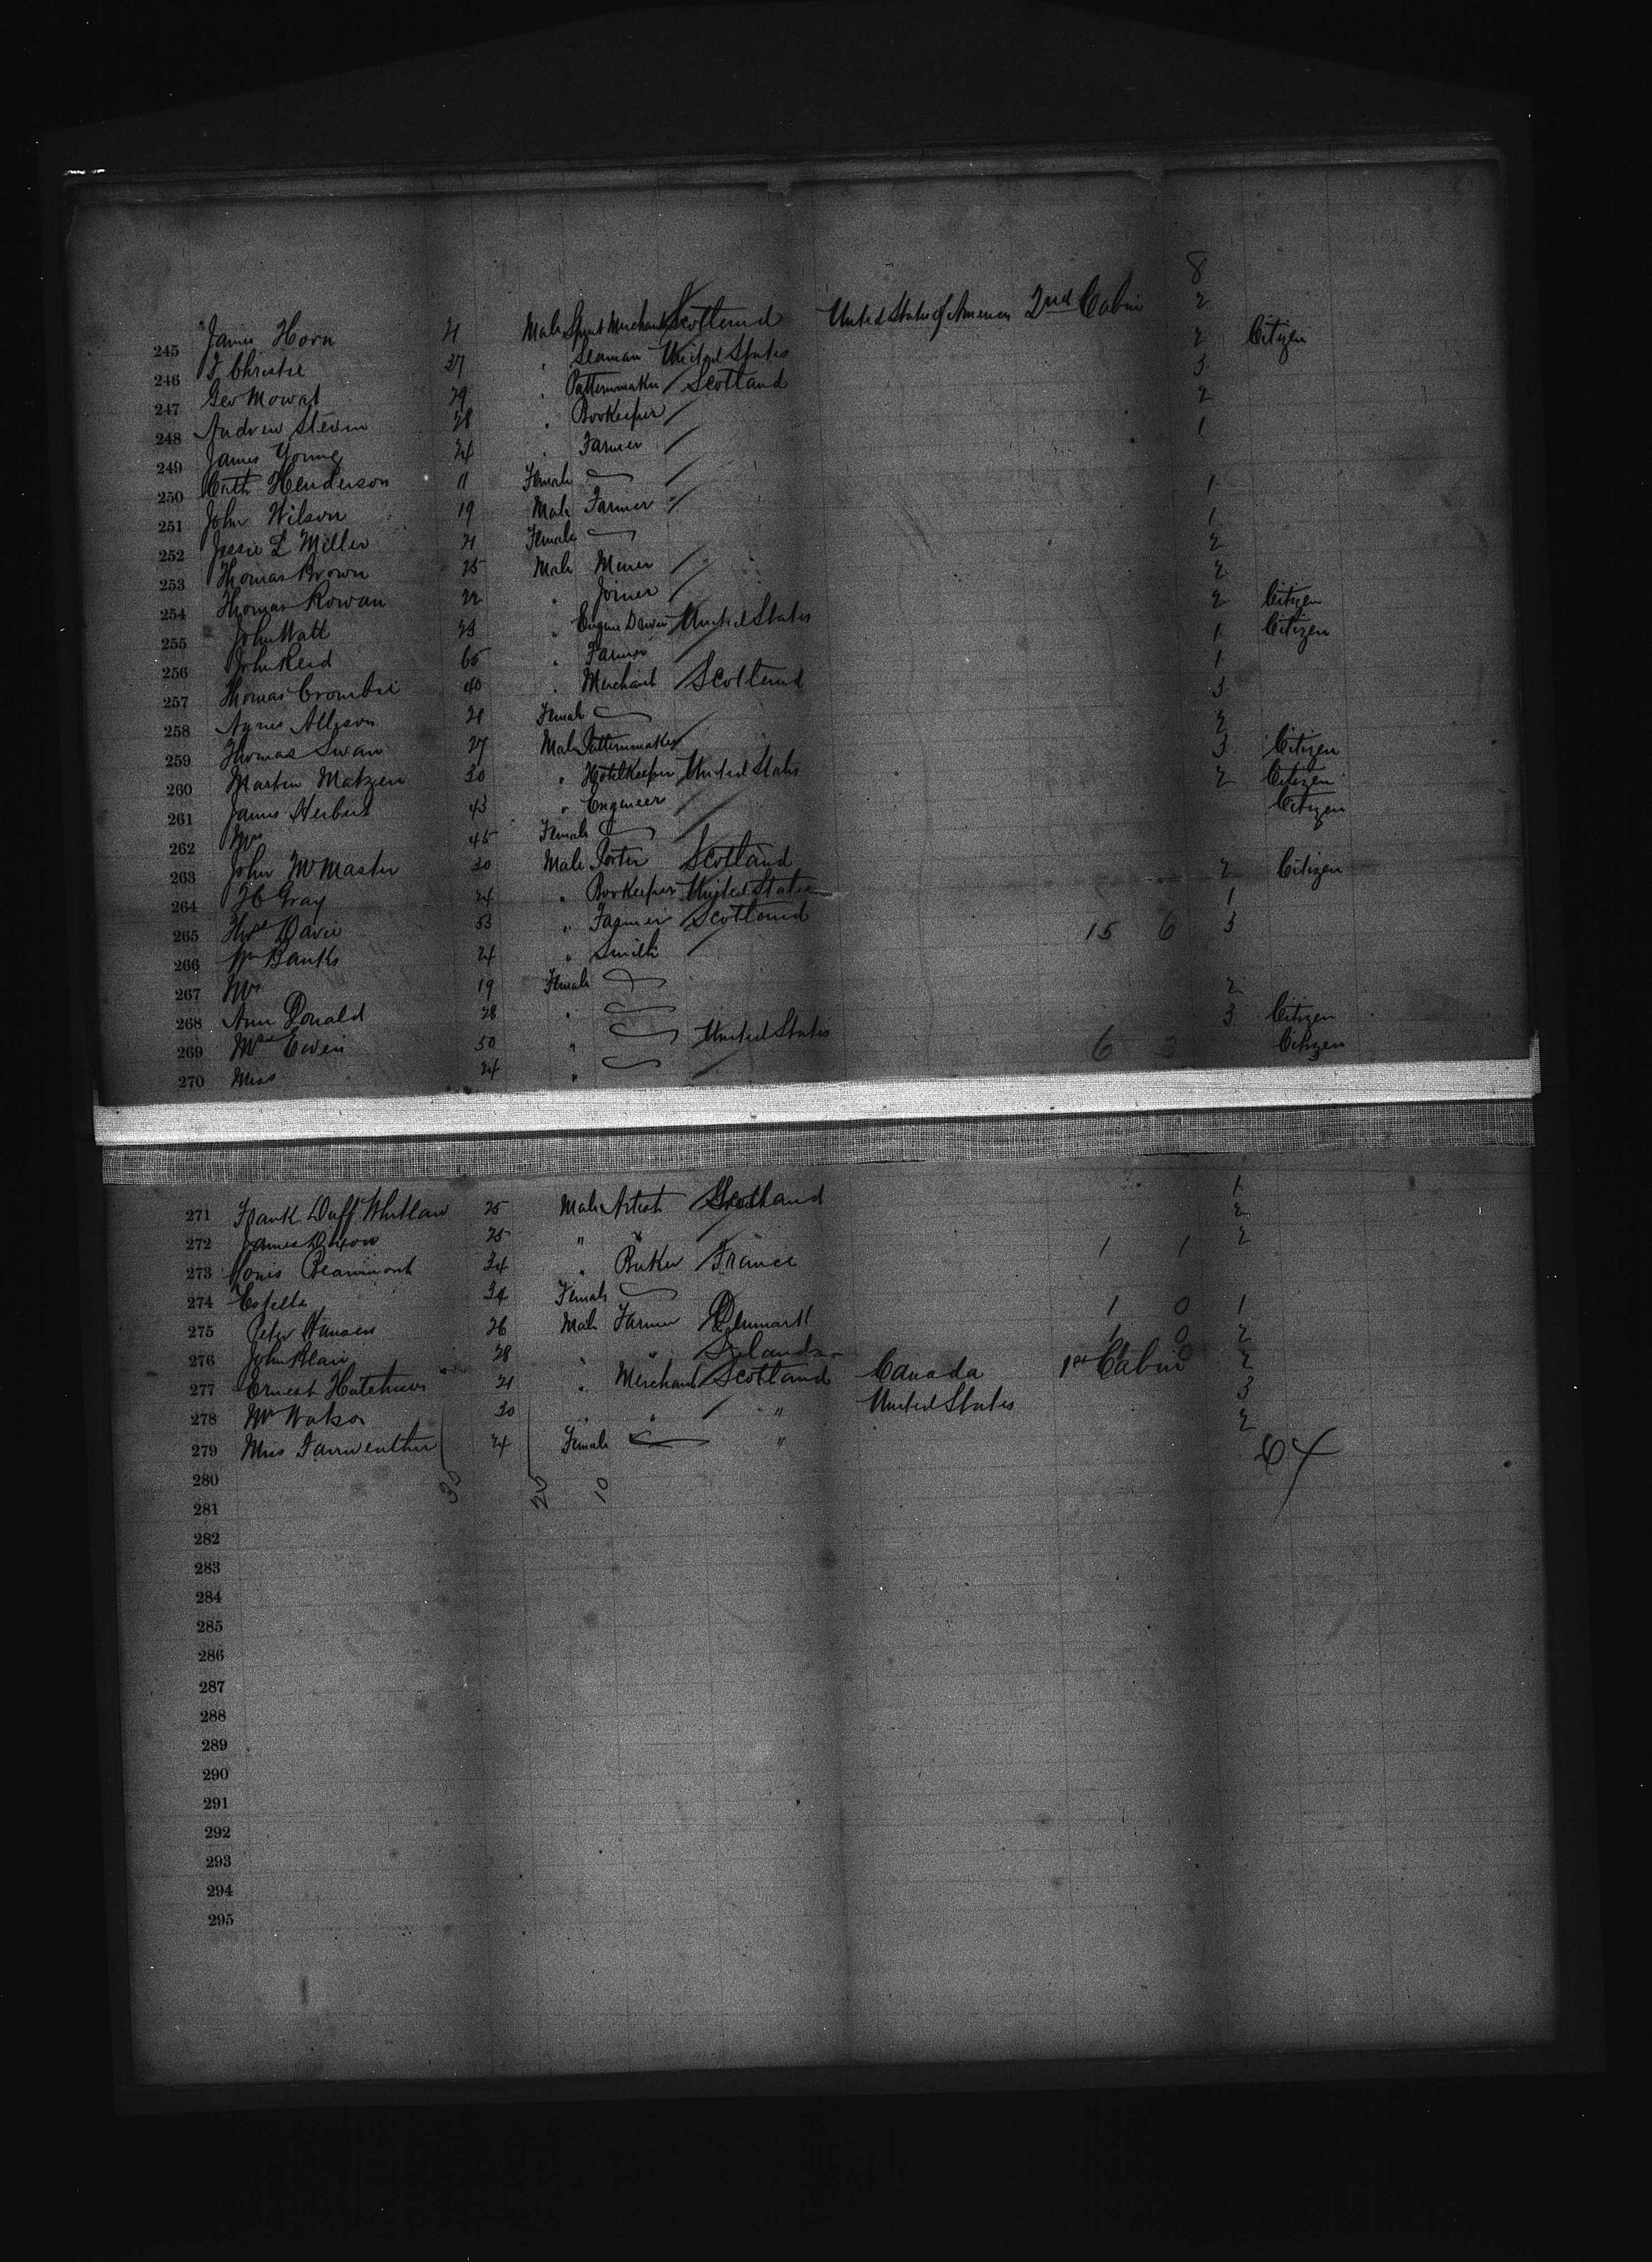 8
245 James Horn 21 Male Spirit Merchant Scotland United States of America 2nd Cabin 2
246 J Christie 27 " Seaman United States 2 Citizen
247 Geo Mowat 29 " Patternmaker Scotland 3
248 Andrew Steven 28 " Bookeeper 2
249 James Young 24 " Farmer 1
250 Cath Henderson 11 Female
251 John Wilson 19 Male Farmer " 1
252 Jessie L Miller 21 Female 1
253 Thomas Brown 25 Male Miner " 2
254 Thomas Rowan 22 " Joiner " 2
255 John Watt 23 " Engine Driver United States 2 Citizen
256 John Reid 65 " Farmer 1 Citizen
257 Thomas Crombie 40 " Merchant Scotland 1
258 Agnes Allison 21 Female 3
259 Thomas Swan 27 Male Patternmaker 2
260 Martin Matzen 30 " Hotelkeeper United States 3 Citizen
261 James Herbert 43 " Engineer 2 Citizen
262 Mrs 45 Female Citizen
263 John McMaster 30 Male Porter Scotland
264 Gray 24 " Bookeeper United States 2 Citizen
265 Thos Davie 53 " Farmer Scotland 1
266 Wm Banks 24 " Smith 15 6 3
267 Mrs 19 Female
268 Ann Donald 28 " 2
269 Mrs Ewen 50 " United States 3 Citizen
270 Miss 24 " 6 3 Citizen
271 Frank Duff Whitlaw 25 Male Artist Scotland 1
272 James Dixon 25 " " 2
273 Louis Beaumont 34 " France 1 1 2
274 Estella 34 Female
275 Peter Hansen 26 Male Farmer Denmark 1 0 1
276 John Blair 28 " " 1 0 2
277 Ernest 21 " Merchant Scotland Canada 1st Cabin 2
278 Mr Watson 30 " " " United States 3
279 Miss Fairweather 24 Female " 2
280 30 20 10 64
281
282
283
284
285
286
287
288
289
290
291
292
293
294
295